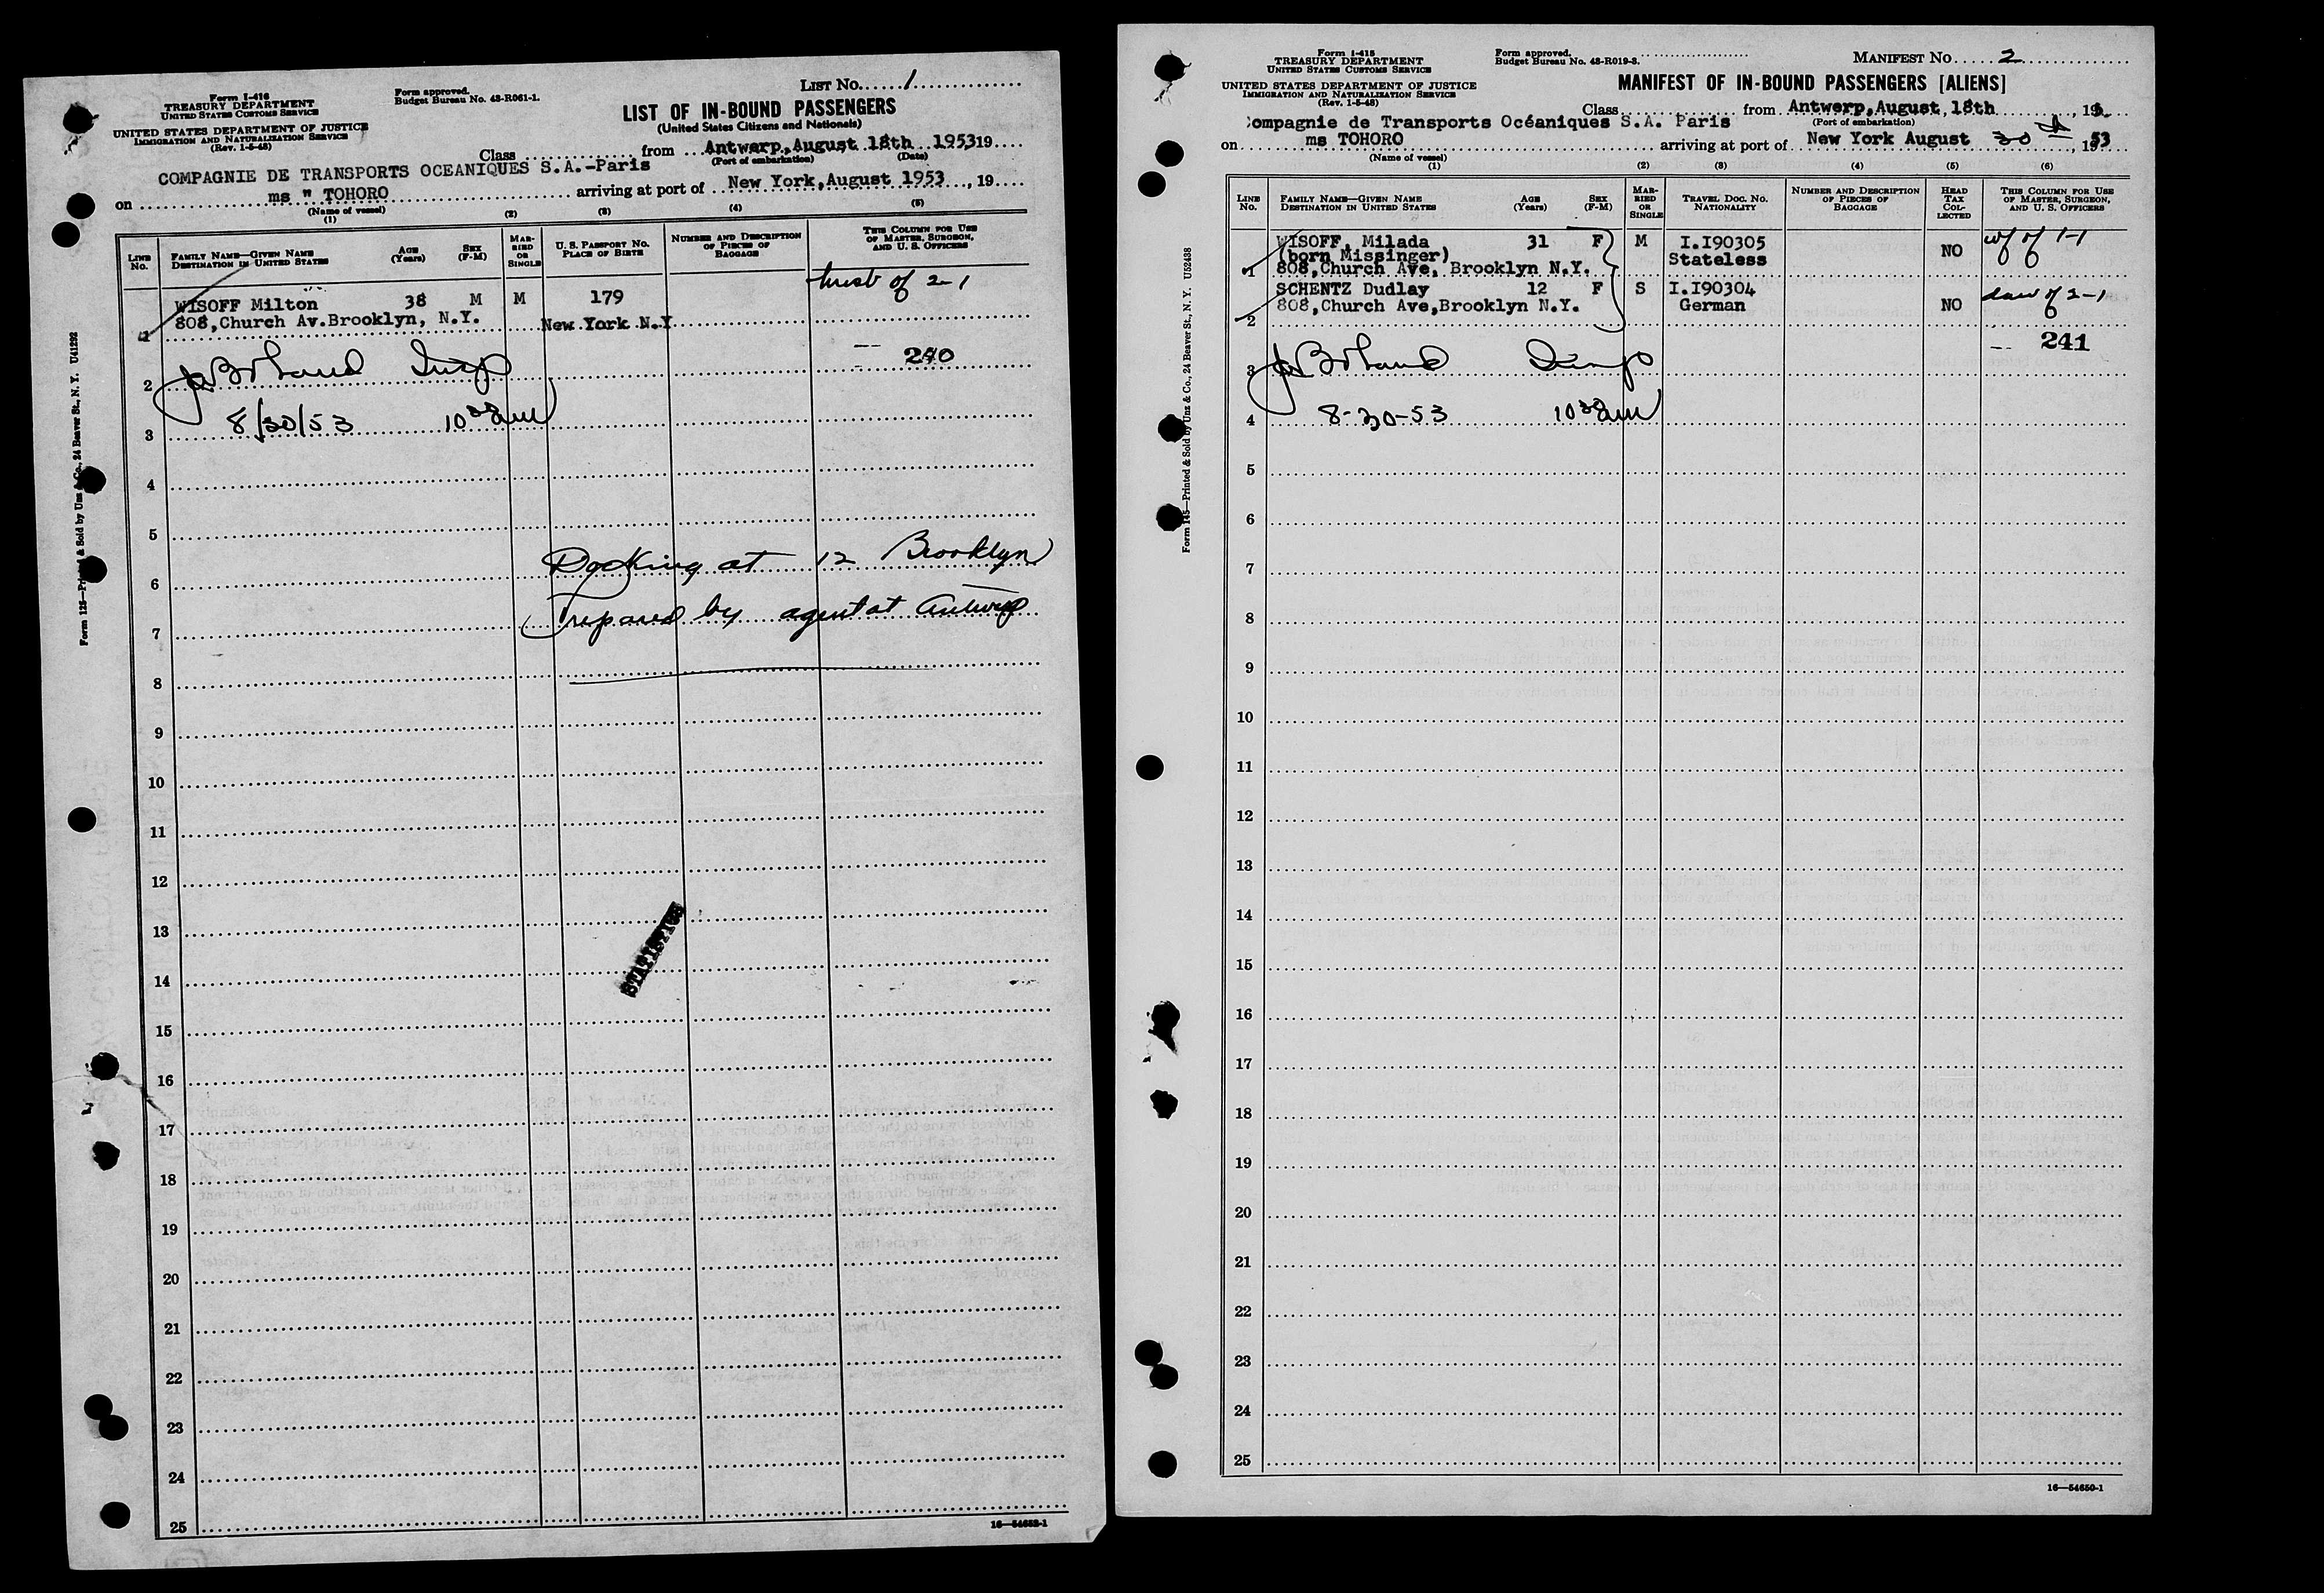 LIST No. 1
Form I-416
TREASURY DEPARTMENT
UNITED STATES CUSTOMS SERVICE
UNITED STATES DEPARTMENT OF JUSTICE
IMMIGRATION AND NATURALIZATION SERVICE
(Rev. 1-5-48)
Form approved.
Budget Bureau No. 43-R061-1.
LIST OF IN-BOUND PASSENGERS
(United States Citizens and Nationals)
Class from Antwerp, August 18th 1953 19
(Port of embarkation) (Date)
COMPAGNIE DE TRANSPORTS OCEANIQUES S.A.-Paris
on ms " TOHORO arriving at port of New York, August 1953, 19
(Name of vessel)
(1) (2) (3) (4) (5)
LINE No. FAMILY NAME—GIVEN NAME DESTINATION IN UNITED STATES AGE (Years) SEX (F-M) MARRIED OR SINGLE U. S. PASSPORT NO. PLACE OF BIRTH NUMBER AND DESCRIPTION OF PIECES OF BAGGAGE THIS COLUMN FOR USE OF MASTER, SURGEON, AND U. S. OFFICERS
WISOFF Milton 38 M M 179 husb of 2-1
1 808, Church Av. Brooklyn, N.Y. New York N.Y
2 Insp 240
3 8/30/53 10 30 am
4
5
6 Docking at 12 Brooklyn
7 Prepared by agent at Antwerp
8
9
10
11
12
13
STATISTICS
14
15
16
17
18
19
20
21
22
23
24
25
16—54652-1
Form 125—Printed & Sold by Unz & Co., 24 Beaver St., N. Y. U41292
Form I-415
TREASURY DEPARTMENT
UNITED STATES CUSTOMS SERVICE
UNITED STATES DEPARTMENT OF JUSTICE
IMMIGRATION AND NATURALIZATION SERVICE
(Rev. 1-5-48)
Form approved.
Budget Bureau No. 43-R019-3.
MANIFEST No. 2
MANIFEST OF IN-BOUND PASSENGERS [ALIENS]
Class from Antwerp, August, 18th, 195
(Port of embarkation)
ompagnie de Transports Océaniques S.A. Paris
on ms TOHORO arriving at port of New York August 30th, 1953
(Name of vessel)
(1) (2) (3) (4) (5) (6)
LINE No. FAMILY NAME—GIVEN NAME DESTINATION IN UNITED STATES AGE (Years) SEX (F-M) MARRIED OR SINGLE TRAVEL DOC. NO. NATIONALITY NUMBER AND DESCRIPTION OF PIECES OF BAGGAGE HEAD TAX COLLECTED THIS COLUMN FOR USE OF MASTER, SURGEON, AND U. S. OFFICERS
WISOFF, Milada 31 F M I.I90305 NO wf of 1-1
(born Missinger) Stateless
1 808, Church Ave, Brooklyn N.Y.
SCHENTZ Dudlay 12 F S I.I90304 NO dau of 2-1
808, Church Ave, Brooklyn N.Y. German
2
241
3 Insp
4 8-30-53 10 30 am
5
6
7
8
9
10
11
12
13
14
15
16
17
18
19
20
21
22
23
24
25
16—54650-1
Form 145—Printed & Sold by Unz & Co., 24 Beaver St., N. Y. U52438